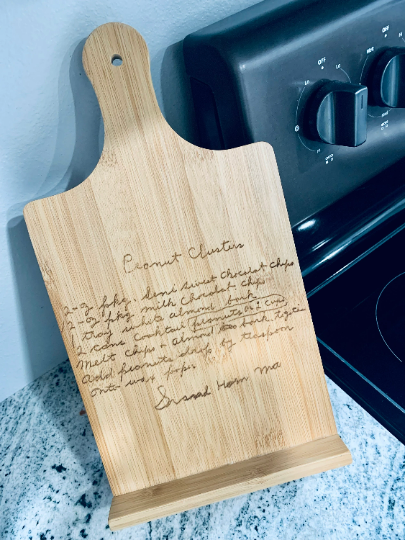 Peanut Clusters
2-oz pkg. Semi Sweet Chocolat Chips
2-oz pkg milk Chocolat chips
1 tray white almond bark
2 cans cocktail peanuts or 2 cups
Melt chips + almond bark together
Add peanuts drop by teaspoon
onto wax paper
OFF
OFF